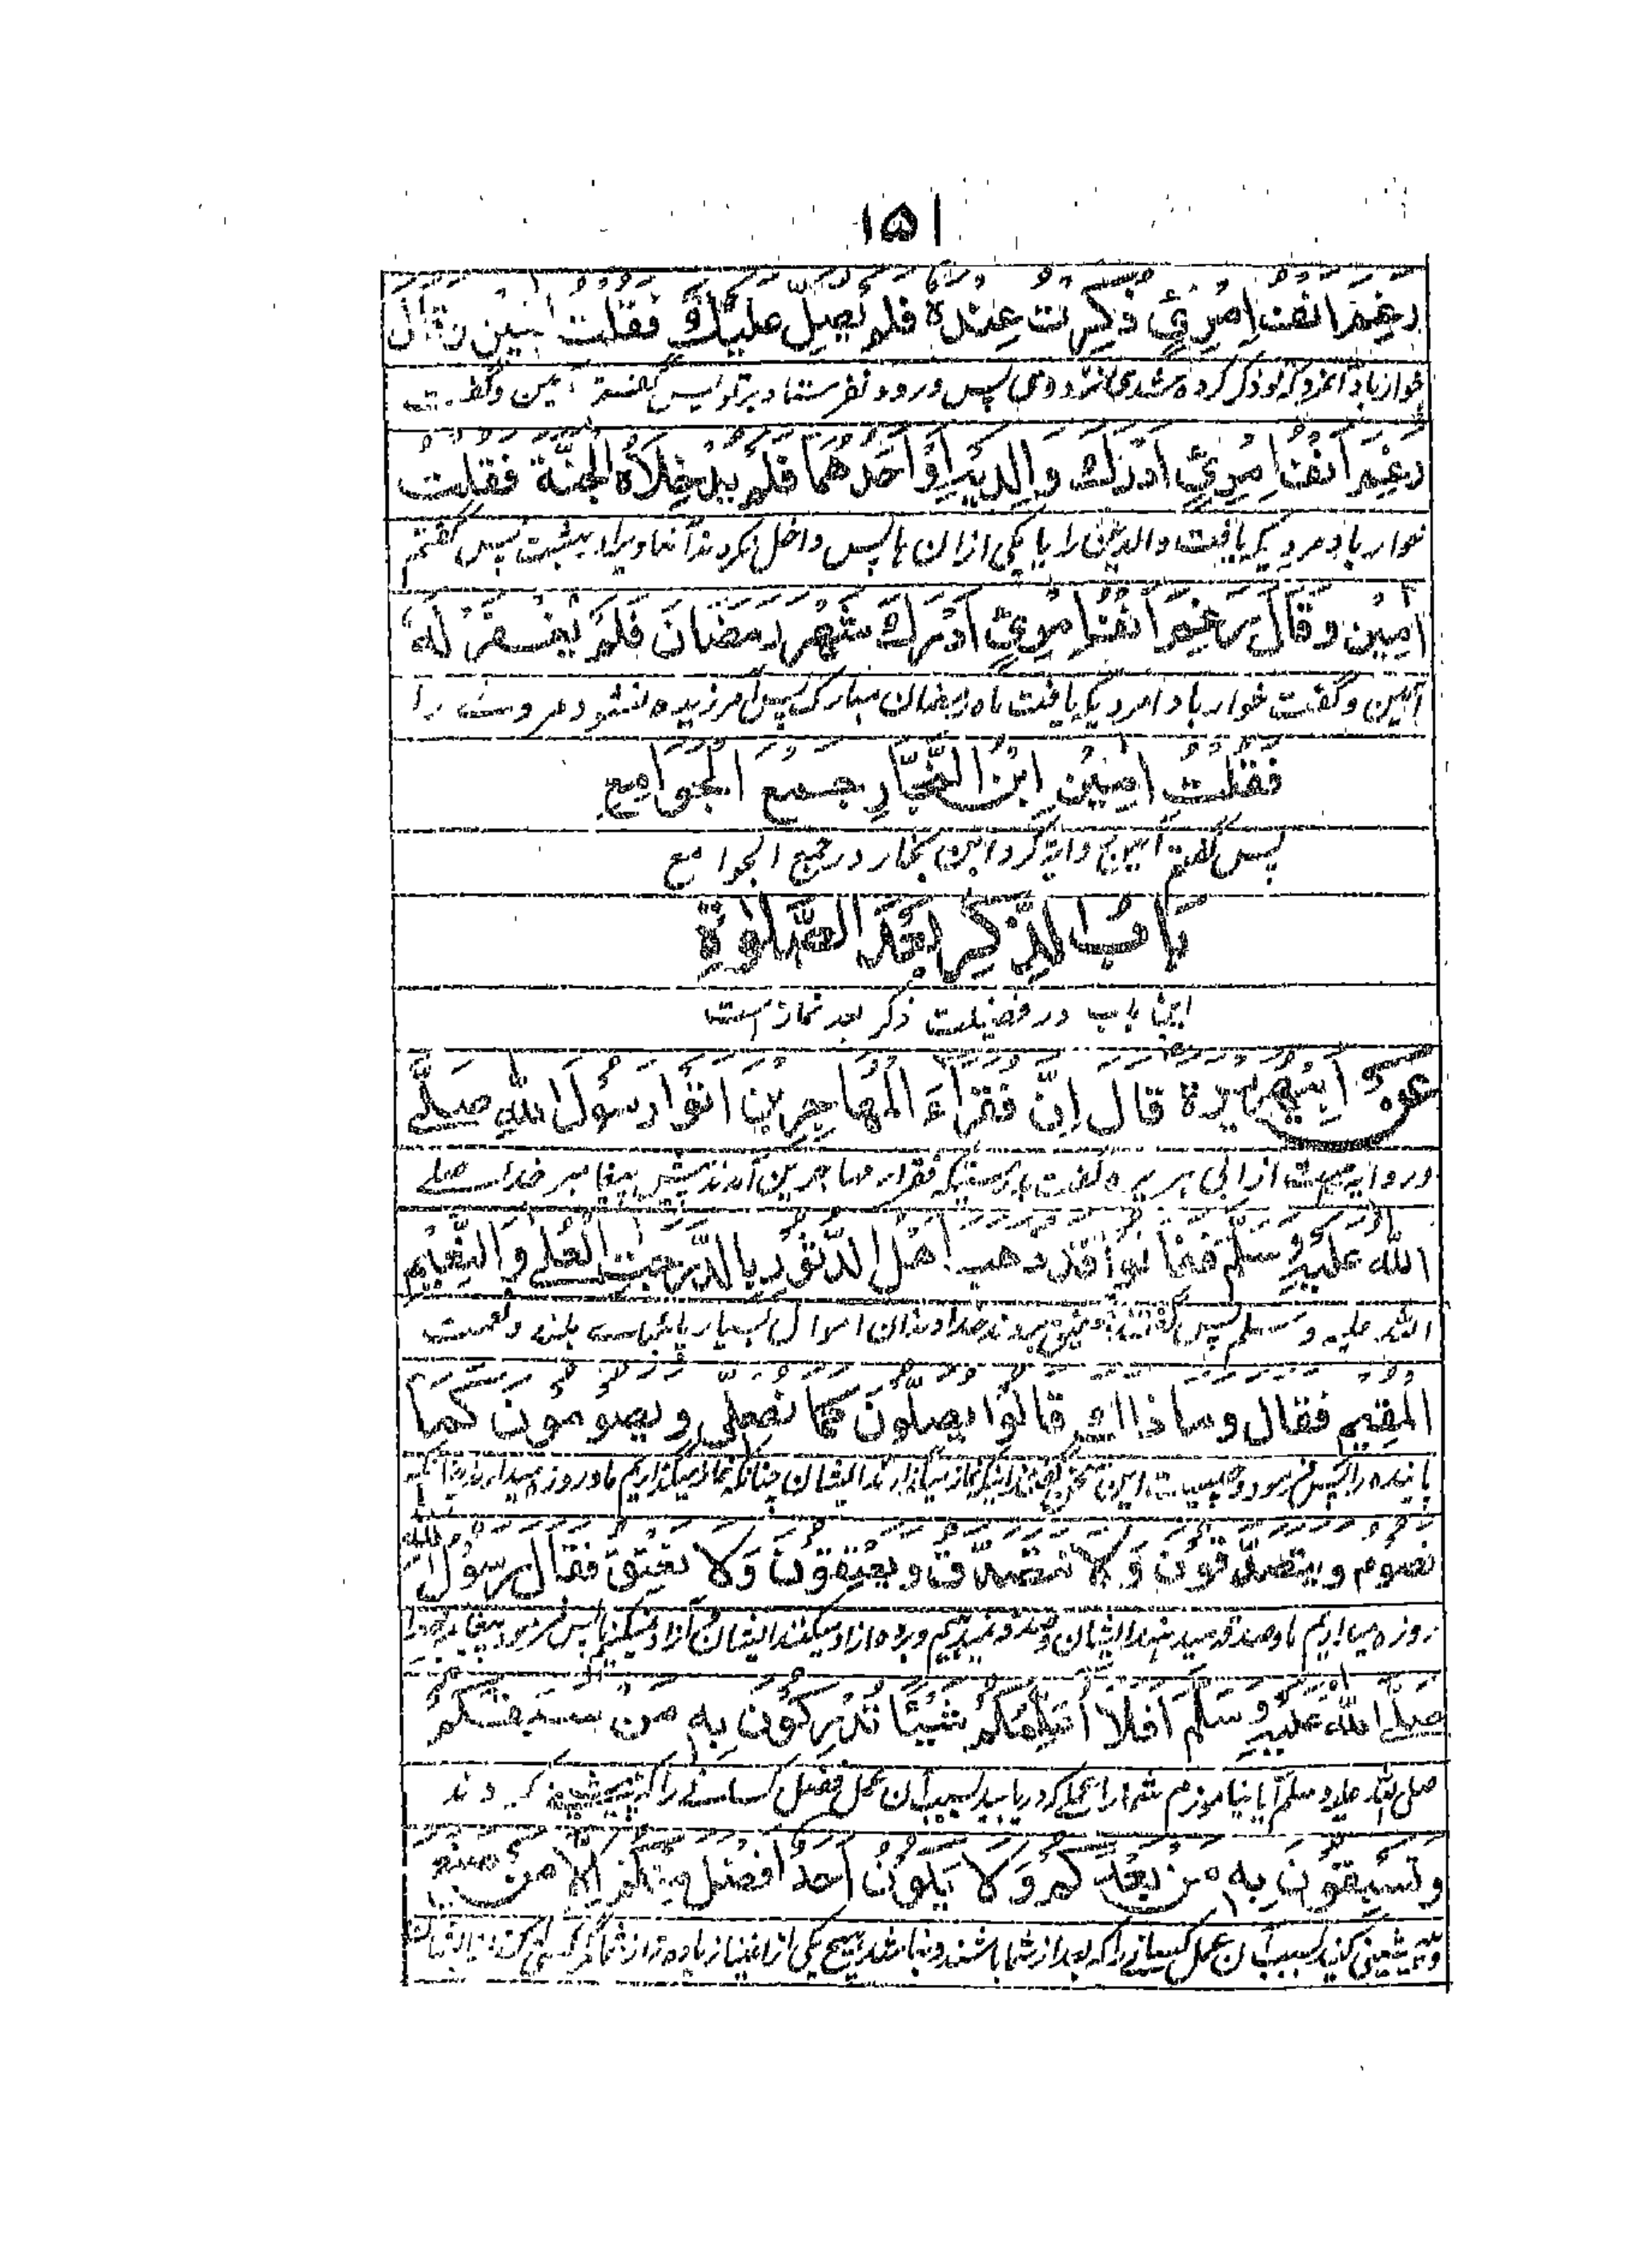 ۱۵۱
رغم انف امرئ ذكرت عنده فلم يصل عليك فقلت امين وقال
خوار باد آنمرد که تو ذکر کرده شدی نزد وی پس درود نفرستاد بر تو پس گفتم آمین وگفت
رغم انف امرئ ادرك والديه او احدهما فلم يدخلاه الجنة فقلت
خوار باد مردیکه یافت والدین را یا یکی ازان ها پس داخل نکردند آنها ویرا در بهشت پس گفتم
امين وقال رغم انف امرئ ادرك شهر رمضان فلم يغفر له
آمین و گفت خوار باد امردیکه یافت ماه رمضان مبارک پس آمرزیده نشود مر وے را
فقلت امين ابن النجار جمع الجوامع
پس گفتم آمین روایة کرد ابن نجار در جمع الجوامع
باب الذكر بعد الصلوة
این باب در فضیلت ذکر بعد نماز است
عن ابي هريرة قال ان فقراء المهاجرين اتوا رسول الله صلى
و روایت است از ابی هریره گفت بدرستیکه فقراء مهاجرین آمدند پیش پیغامبر خدا صلے
الله عليه وسلم فقالوا قد ذهب اهل الدثور بالدرجت العلى والنعيم
الله علیه وسلم پس گفتند بردند خداوندان اموال بسیار بلند و نعمت
المقيم فقال وما ذاك قالوا يصلون كما نصلي ويصومون كما
پاینده را پس فرمود و چیست این گفتند نماز میگذارند ایشان چنانکه نماز میگذاریم ما و روزه میدارند
نصوم ويتصدقون ولا نتصدق ويعتقون ولا نعتق فقال رسول الله
روزه میداریم ما و صدقه میدهند ایشان و صدقه نمیدهیم و برده آزاد میکنند ایشان و آزاد نمیکنیم ما پس فرمود پیغامبر خدا
صلى الله عليه وسلم افلا اعلمكم شيئا تدركون به من سبقكم
صلی الله علیه وسلم آیا نیاموزم شمارا عملے که دریابید بسبب آن عمل فضل کسانے را که پیشی کردند
وتسبقون به من بعدكم ولا يكون احد افضل منكم الا من صنع
و پیشی کنید بسبب آن عمل کسانے را که بعد از شما باشند و نباشد هیچ یکی از اغنیا زیاده تر از شما مگر کسی